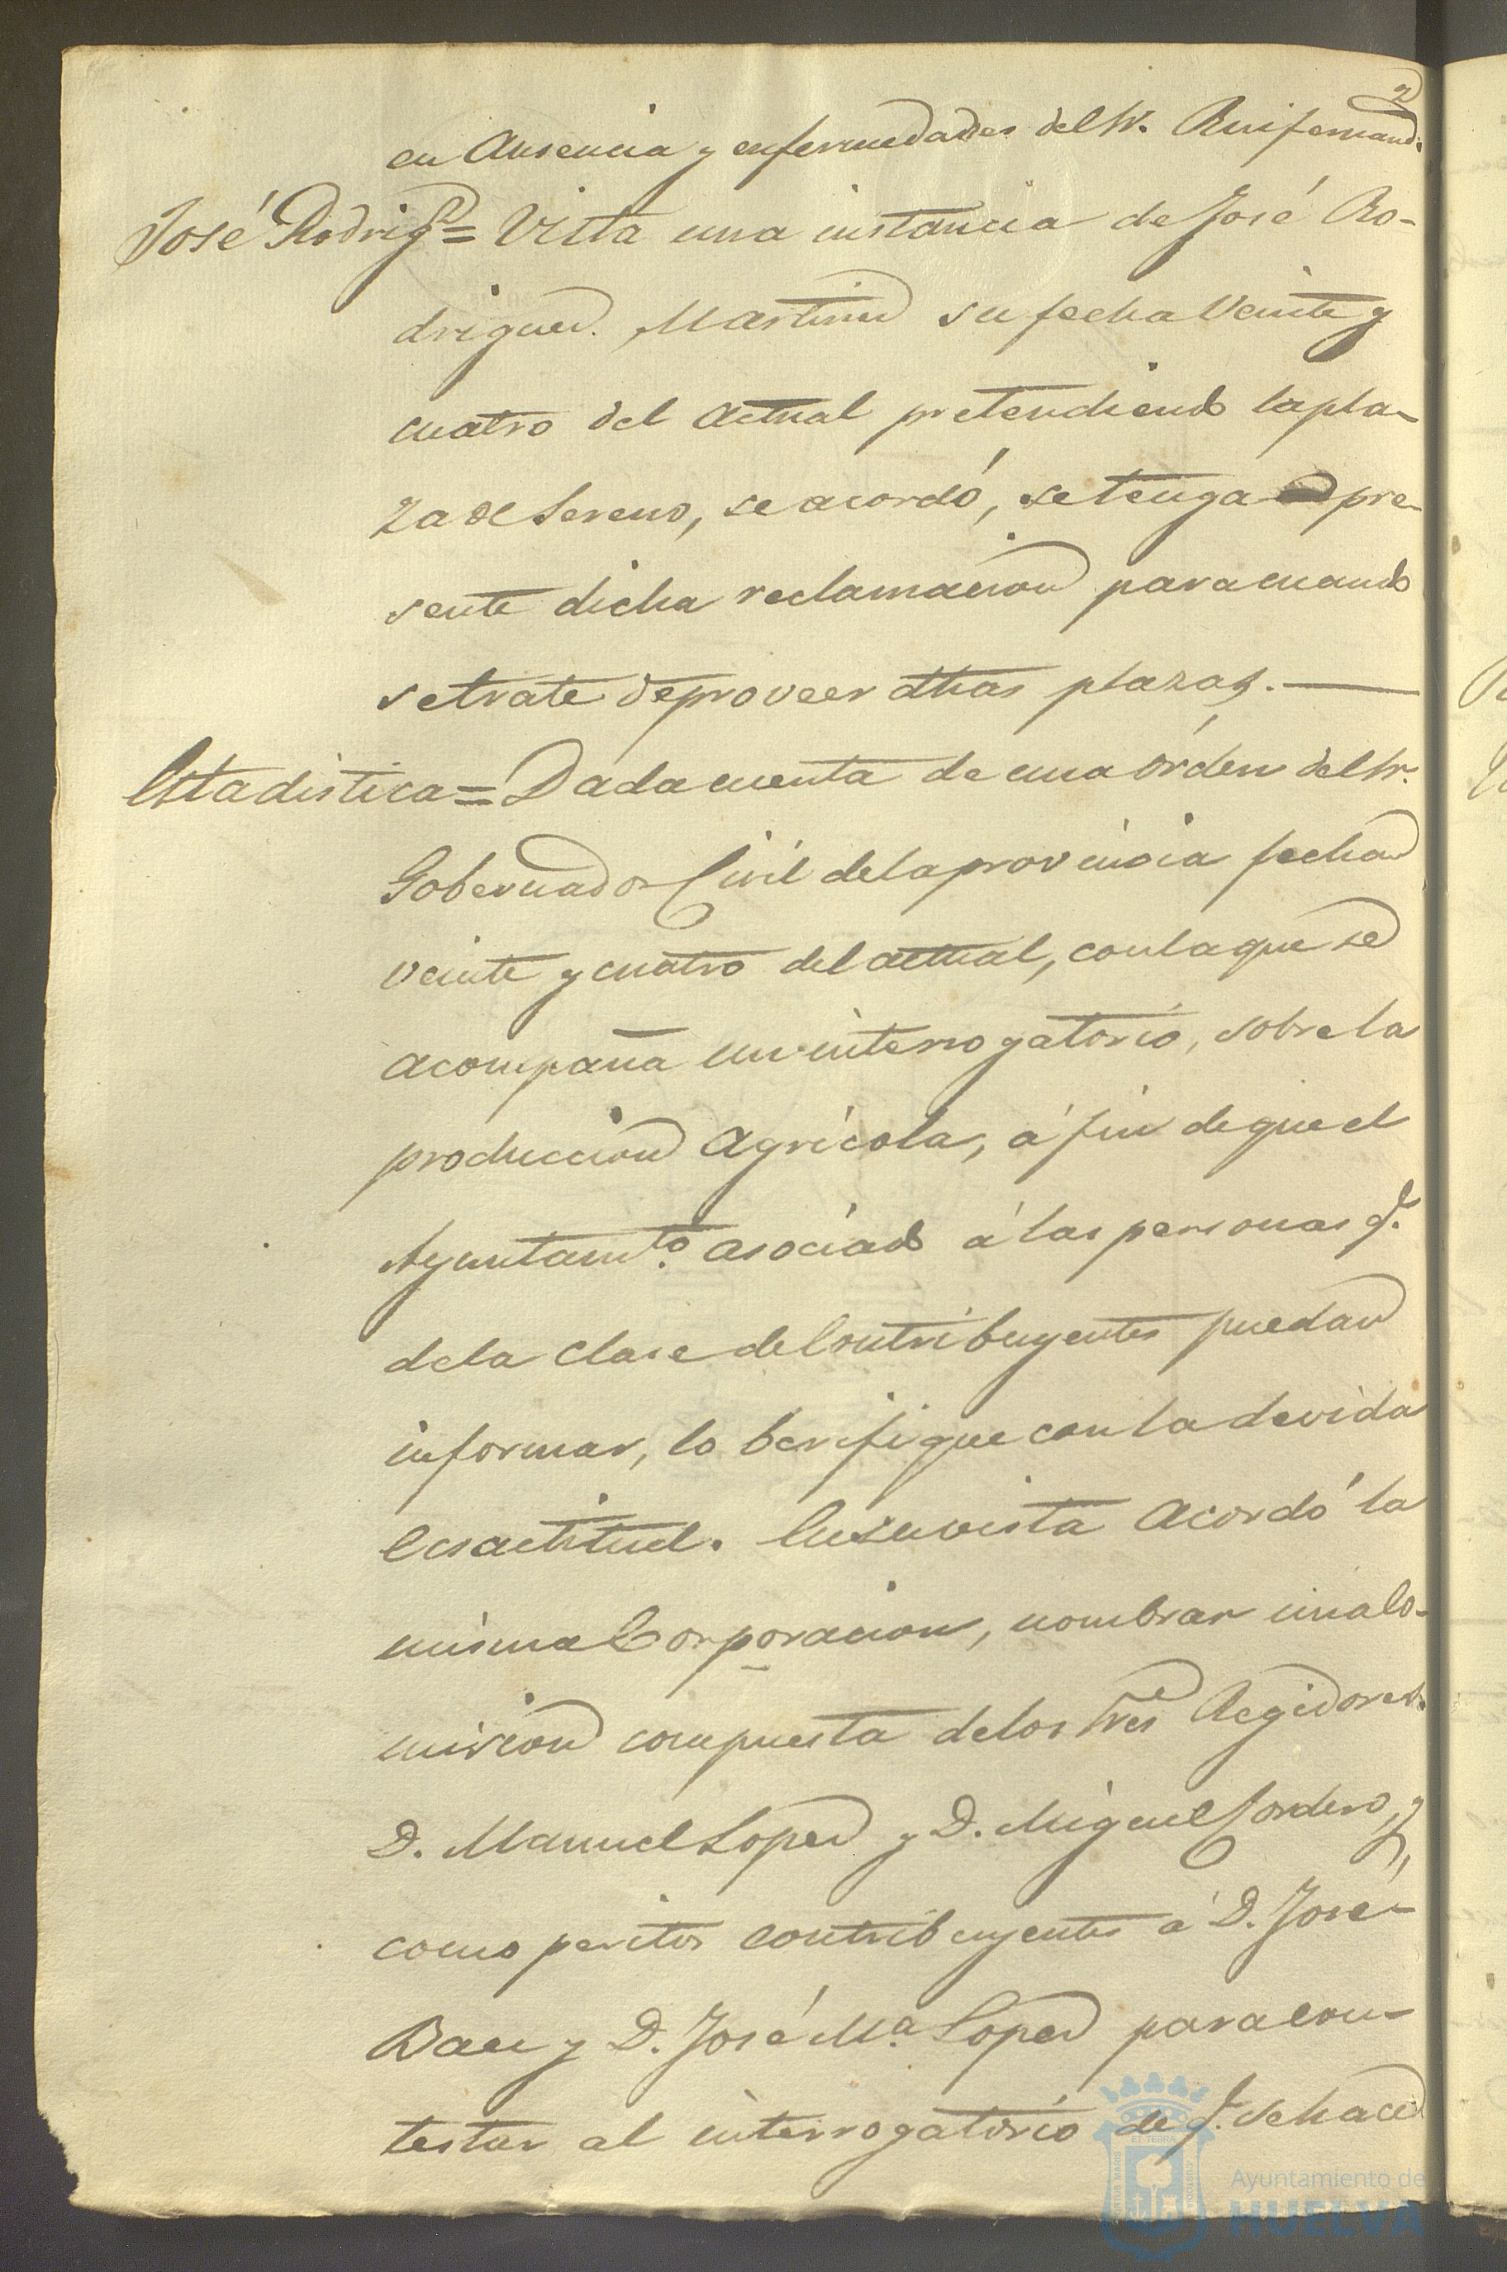 en Ausencia y enfermedades del Sr. Ruifernandz
José Rodrigz = Vista una instancia de José Ro-
driguez. Martinez su fecha Veinte y
cuatro del actual pretendiendo la pla-
za de Sereno, se acordó, se tenga pre-
sente dicha reclamacion para cuando
se trate de proveer dhas plazas.
Estadistica = Dada cuenta de una órden del Sr.
Gobernador Civil de la provincia fecha
veinte y cuatro del actual, con la que se
acompaña un interrogatorio, sobre la
produccion Agricola, á fin de que el
Ayuntamto. asociado á las personas q.e
de la clase de Contribuyentes puedan
informar, lo berifique con la devida
Ecsactitud. En su vista acordó la
misma Corporacion, nombrar una Co-
mision compuesta de los Sres Regidores.
D. Manuel Lopez y D. Miguel Cordero, y
como peritos contribuyentes á D. José
Baez y D. José Ma. Lopez para con-
testar al interrogatorio de q.e se hace
Ayuntamiento de
HUELVA